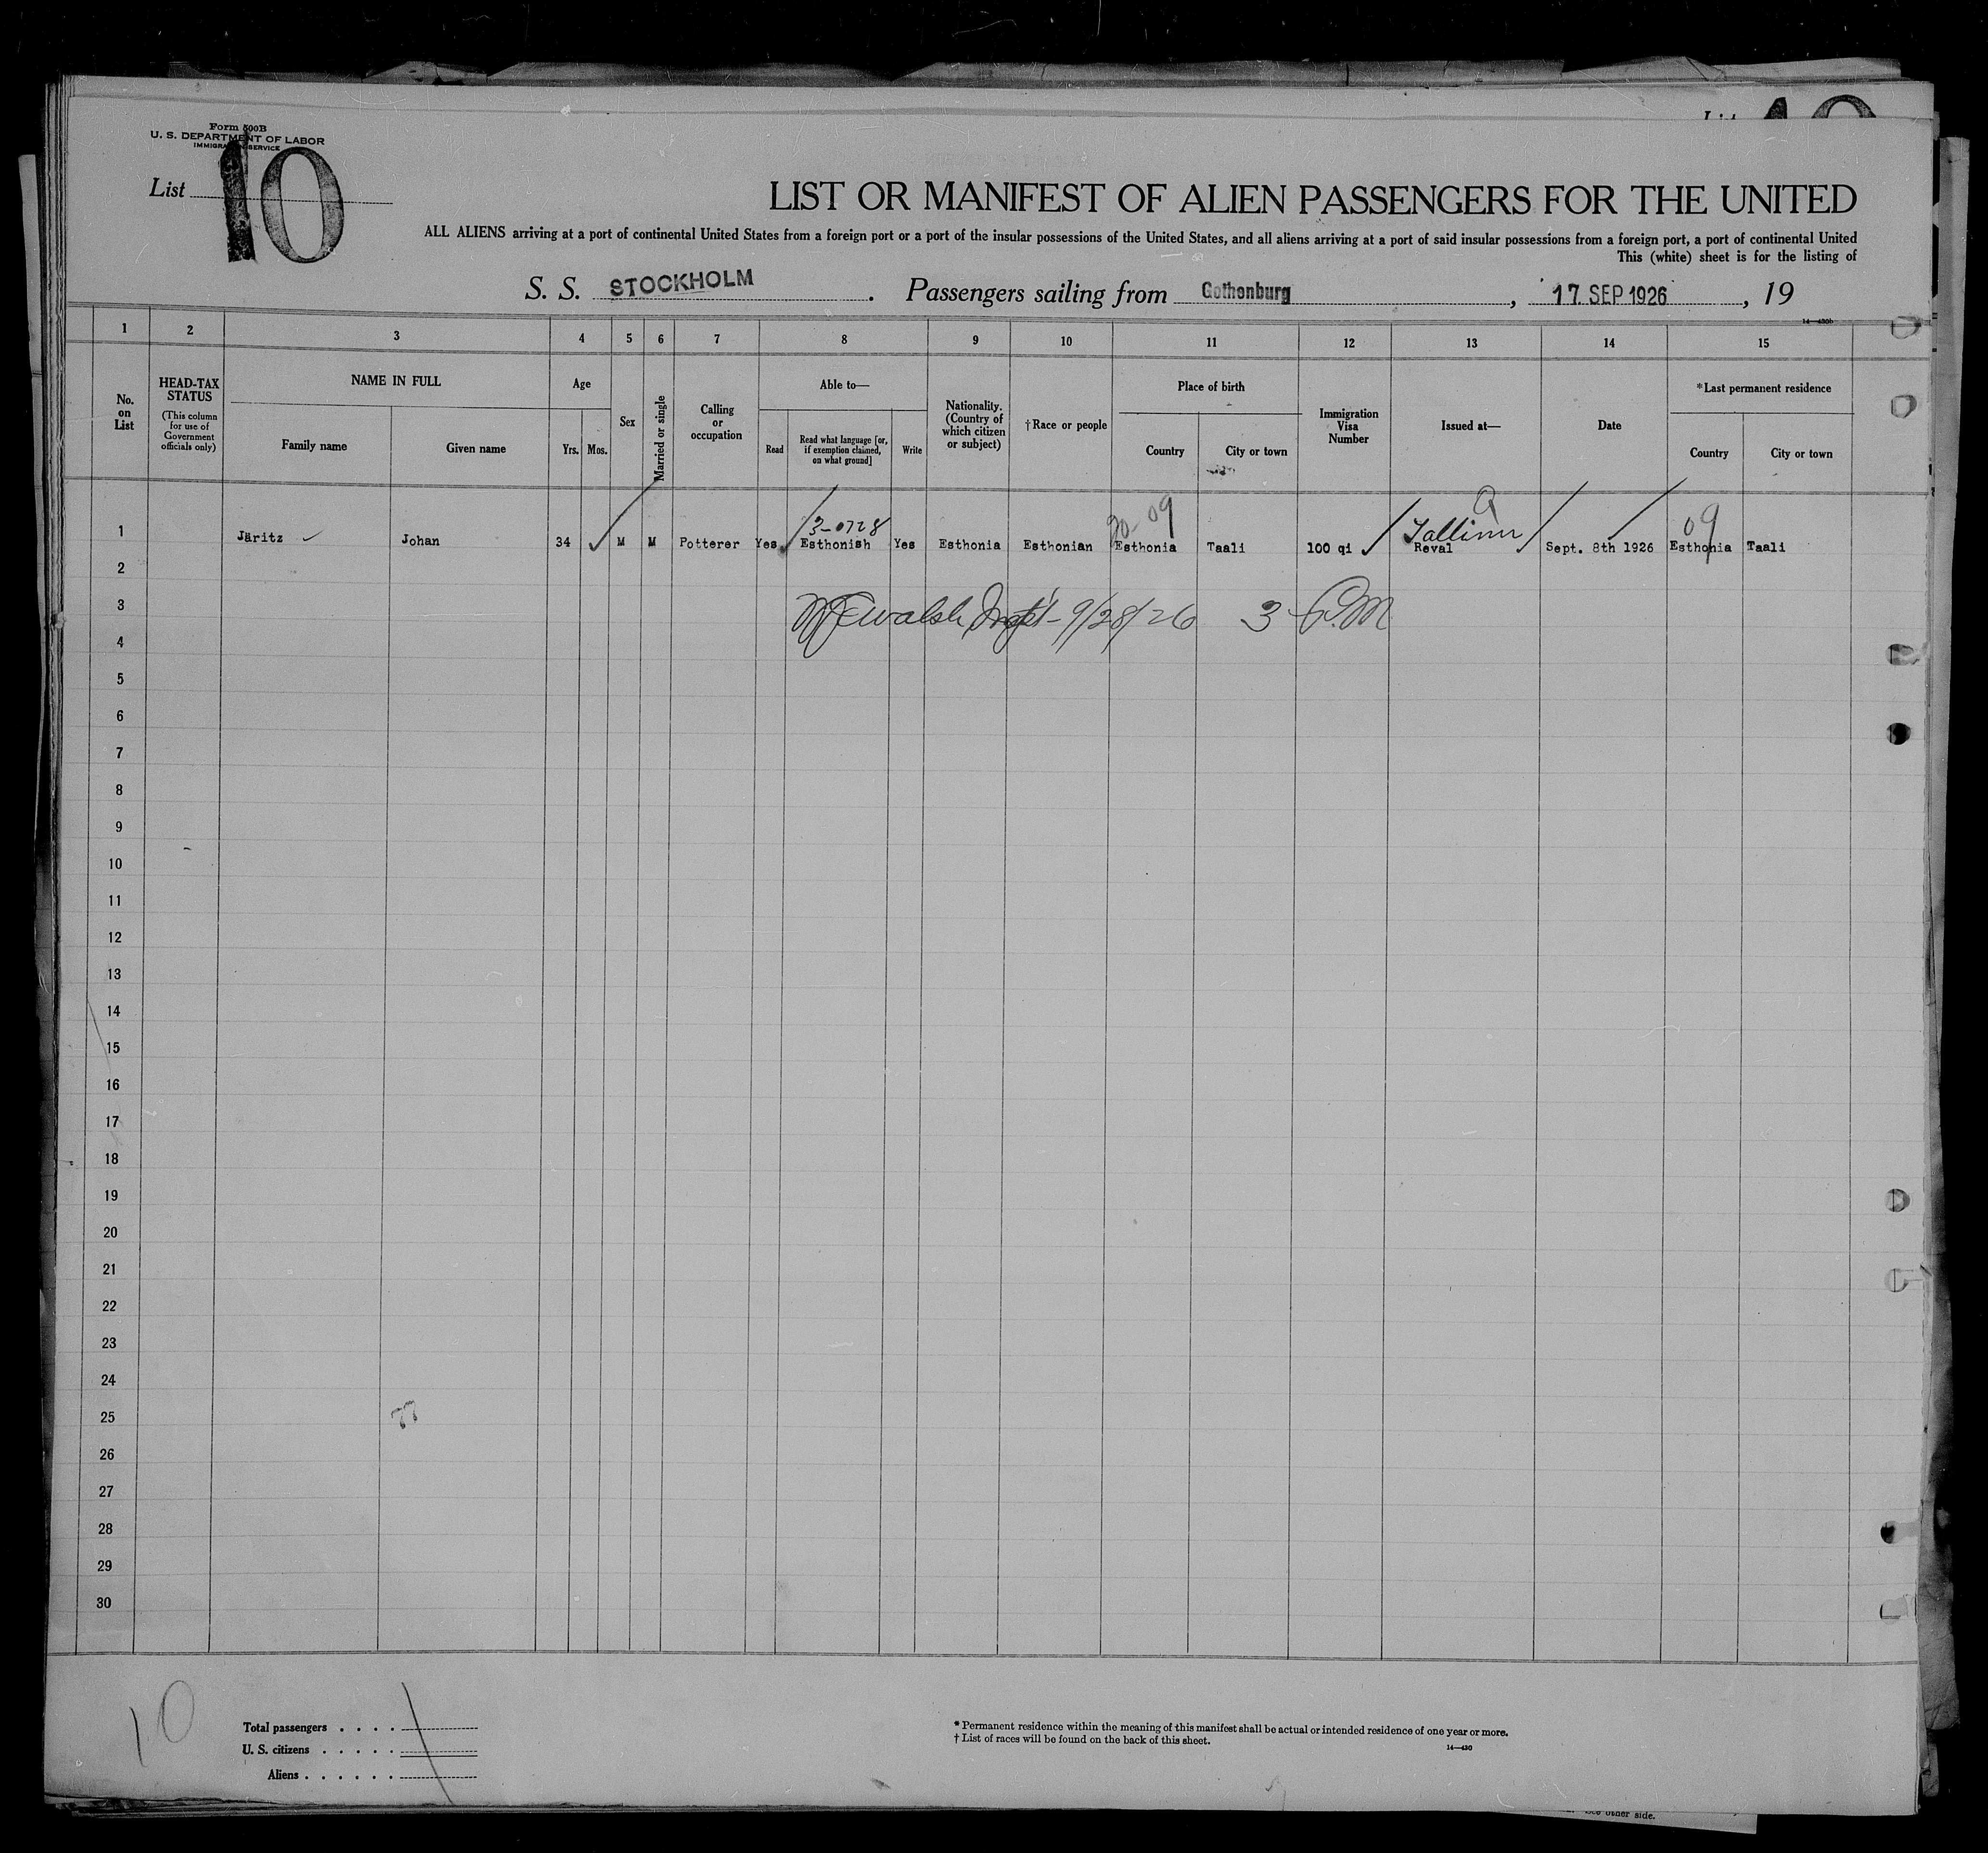 Form 500B
U. S. DEPARTMENT OF LABOR
IMMIGRATION SERVICE
List 10
LIST OR MANIFEST OF ALIEN PASSENGERS FOR THE UNITED
ALL ALIENS arriving at a port of continental United States from a foreign port or a port of the insular possessions of the United States, and all aliens arriving at a port of said insular possessions from a foreign port, a port of continental United
This (white) sheet is for the listing of
S. S. STOCKHOLM. Passengers sailing from Gothenburg, 17 SEP 1926, 19
1 2 3 4 5 6 7 8 9 10 11 12 13 14 15
No. on List
HEAD-TAX STATUS (This column for use of Government officials only)
NAME IN FULL
Family name
Given name
Age
Yrs.
Mos.
Sex
Married or single
Calling or occupation
Able to—
Read
Read what language [or, if exemption claimed, on what ground]
Write
Nationality. (Country of which citizen or subject)
†Race or people
Place of birth
Country
City or town
Immigration Visa Number
Issued at—
Date
*Last permanent residence
Country
City or town
3-0728 20-09 Tallinn 09
1 Järitz Johan 34 M M Potterer Yes Esthonish Yes Esthonia Esthonian Esthonia Taali 100 qi Reval Sept. 8th 1926 Esthonia Taali
2
3 Walsh Inspt- 9/28/26 3 P.M
4
5
6
7
8
9
10
11
12
13
14
15
16
17
18
19
20
21
22
23
24
25
26
27
28
29
30
10
Total passengers . . . .
U. S. citizens . . . . .
Aliens . . . . . .
* Permanent residence within the meaning of this manifest shall be actual or intended residence of one year or more.
† List of races will be found on the back of this sheet.
14—430
See other side.